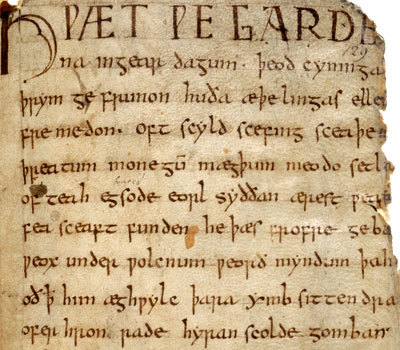 HǷÆT ǷE GARDE
na ingear dagum. þeod cyninga
þrym ge frunon huða æþelingas elle
fremedon. oft scyld scefing sceaþe
þreatum monegū mægþum meodo setla
of teah egsode eorl syððan ærest
fea sceaft funden he þæs frofre geba
ƿeox under ƿolcnum ƿeorð myndum þah
oðꝥ him æghƿylc þara ymb sittendra
ofer hron rade hyran scolde gomban